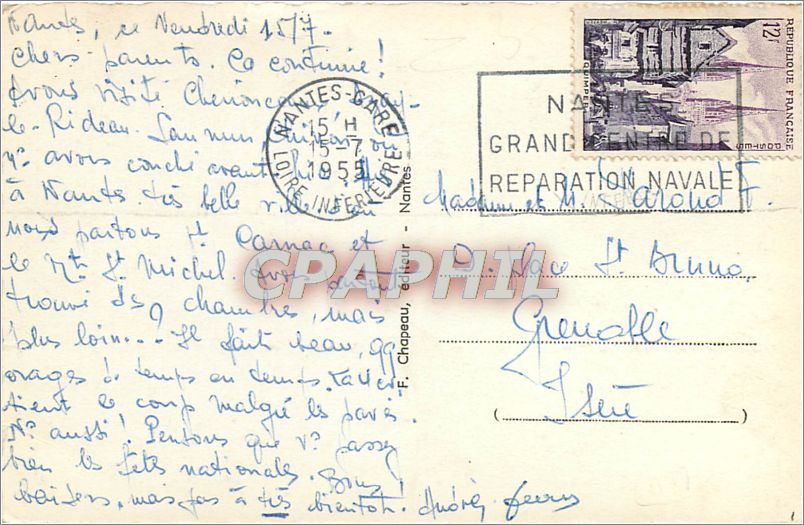 Nantes, ce Vendredi 15/7.
Chers parents. Ça continue!
Avons visité
le-Rideau. Saumur,
ns avons couché avant hier.
à Nantes très belle
nous partons pr Carnac et
le Mt St Michel. Avons
trouvé des chambres, mais
plus loin... Il fait beau, qq
orages de temps en temps.
tient le coup malgré les pavés.
Ns aussi! Pensons que vs passez
bien les fêtes nationales. Bons
baisers, mais pas à très bientôt. Andrée
NANTES-GARE
15 H
15-7
1955
LOIRE INFERIEURE
NANTES
GRAND CENTRE DE
REPARATION NAVALE
RÉPUBLIQUE FRANÇAISE
12f
POSTES
QUIMPER
F. Chapeau, éditeur - Nantes
Madame et M.
Place St. Bruno
Grenoble
(Isère)
CPAPHIL